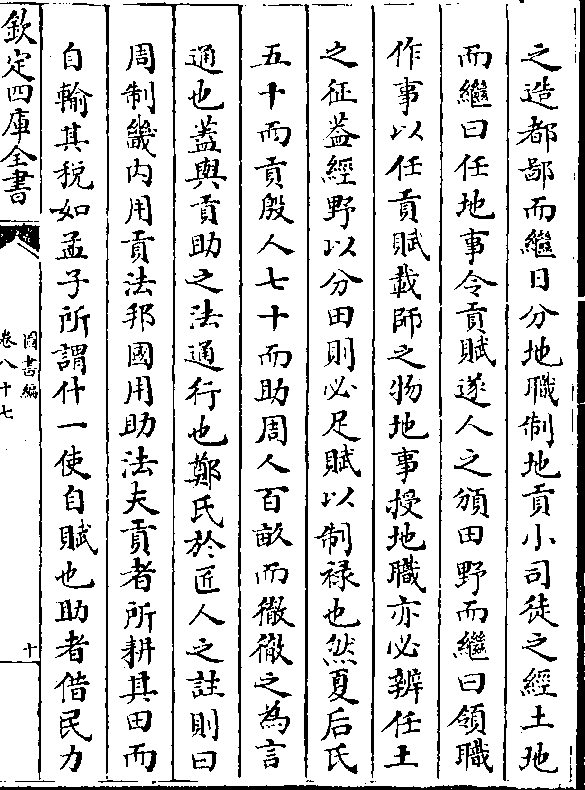 之造都鄙而繼曰分地職制地貢小司徒之經土地
而繼曰任地事令貢賦遂人之頒田野而繼曰領職
作事以任貢賦載師之物地事授地職亦必辨任土
之征葢經野以分田則必足賦以制祿也然夏后氏
五十而貢殷人七十而助周人百畝而徹徹之為言
通也蓋與貢助之法通行也鄭氏於匠人之註則曰
周制畿內用貢法邦國用助法夫貢者所耕其田而
自輸其稅如孟子所謂什一使自賦也助者借民力
欽定四庫全書
圖書編
卷八十七
十